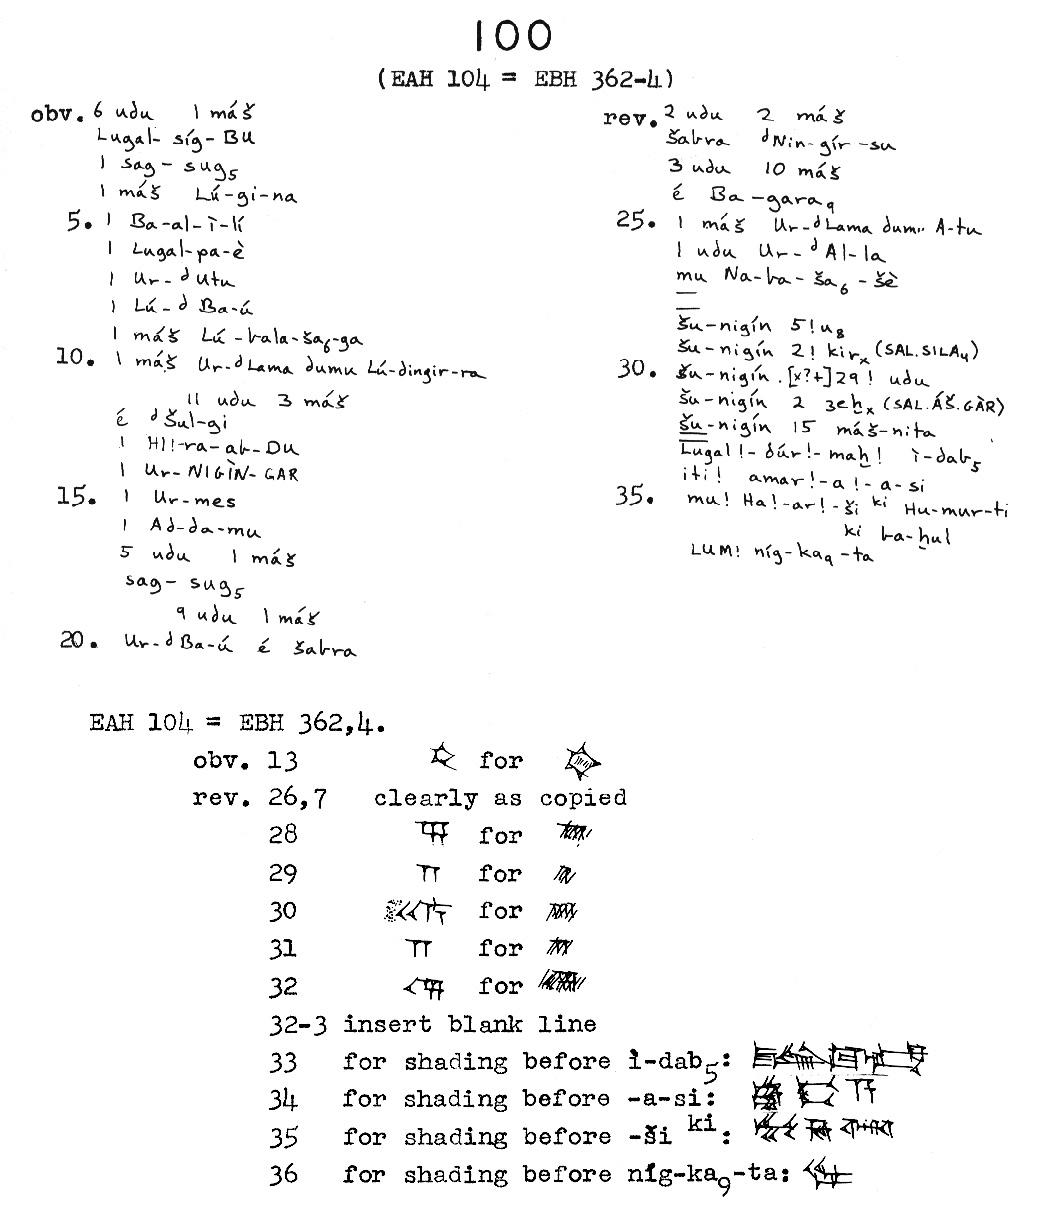 100
(EAH 104 = EBH 362-4)
obv. 6 udu 1 máš
Lugal-síg-BU
1 sag-sug₅
1 máš Lú-gi-na
5. 1 Ba-al-ì-lí
1 Lugal-pa-è
1 Ur-ᵈUtu
1 Lú-ᵈBa-ú
1 máš Lú-bala-ša₆-ga
10. 1 máš Ur-ᵈLama dumu Lú-dingir-ra
11 udu 3 máš
é ᵈŠul-gi
1 HI!-ra-ab-DU
1 Ur-NIGÌN-GAR
15. 1 Ur-mes
1 Ad-da-mu
5 udu 1 máš
sag-sug₅
9 udu 1 máš
20. Ur-ᵈBa-ú é šabra
rev. 2 udu 2 máš
šabra ᵈNin-gír-su
3 udu 10 máš
é Ba-gara₉
25. 1 máš Ur-ᵈLama dumu A-tu
1 udu Ur-ᵈAl-la
mu Na-ba-ša₆-šè
šu-nigín 5! u₈
šu-nigín 2! kirₓ (SAL.SILA₄)
30. šu-nigín [x?+]29! udu
šu-nigín 2 zeḫₓ (SAL.ÁŠ.GÀR)
šu-nigín 15 máš-nita
Lugal!-dúr!-maḫ! ì-dab₅
iti! amar!-a!-a-si
35. mu! Ha!-ar!-ši ᵏⁱ Hu-mur-ti
ki ba-ḫul
LUM! níg-ka₉-ta
EAH 104 = EBH 362,4.
obv. 13 for
rev. 26,7 clearly as copied
28 for
29 for
30 for
31 for
32 for
32-3 insert blank line
33 for shading before ì-dab₅:
34 for shading before -a-si:
35 for shading before -ši ᵏⁱ:
36 for shading before níg-ka₉-ta: